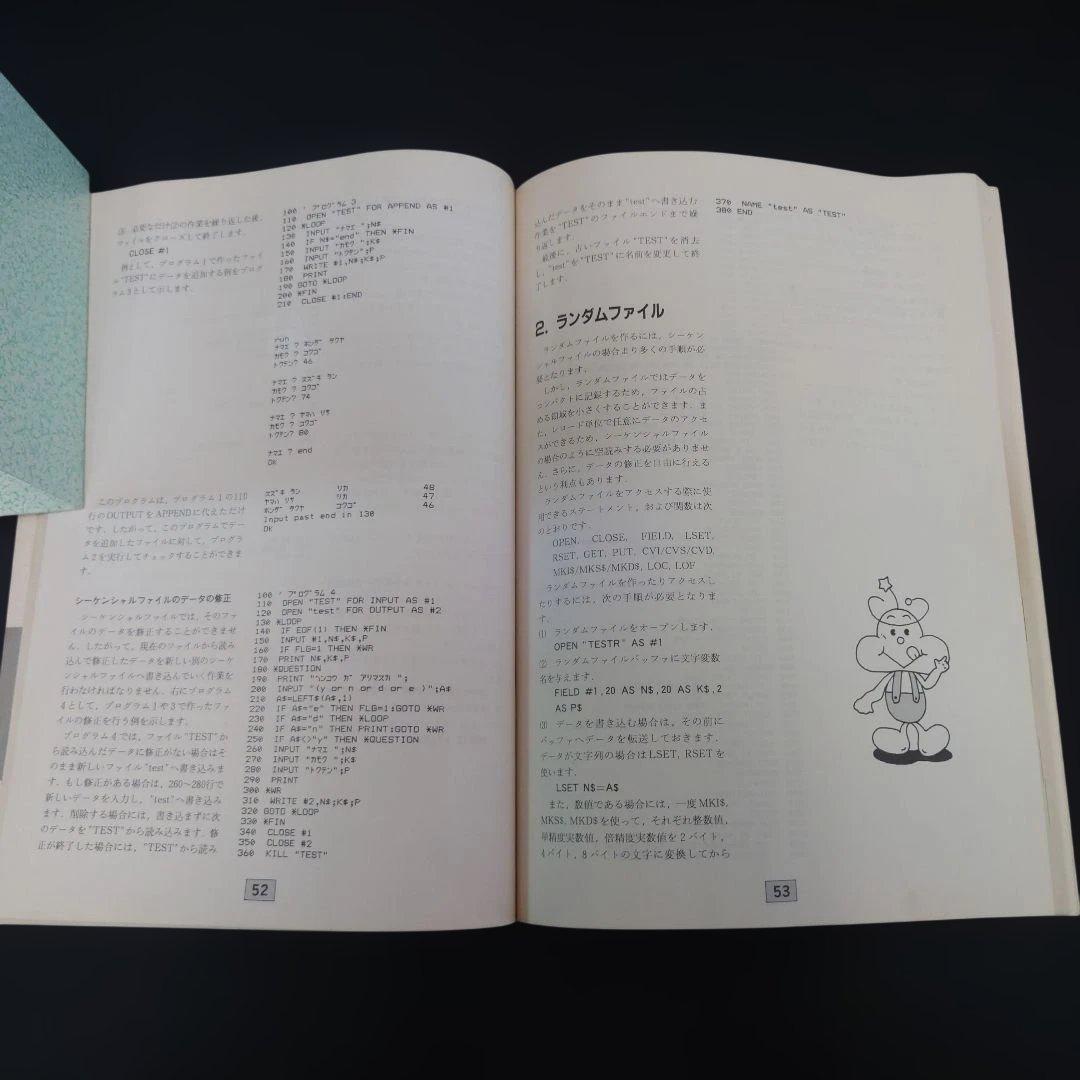 ③ 必要なだけ②の作業を繰り返した後,
ファイルをクローズして終了します.
CLOSE #1
例として, プログラム1で作ったファイ
ル"TEST"にデータを追加する例をプログ
ラム3として示します.
100 ' プログラム 3
110 OPEN "TEST" FOR APPEND AS #1
120 *LOOP
130 INPUT "ナマエ ";N$
140 IF N$="end" THEN *FIN
150 INPUT "カモク ";K$
160 INPUT "トクテン";P
170 WRITE #1,N$;K$;P
180 PRINT
190 GOTO *LOOP
200 *FIN
210 CLOSE #1:END
run
ナマエ ? ホンダ タクヤ
カモク ? コクゴ
トクテン? 46
ナマエ ? スズキ ラン
カモク ? コクゴ
トクテン? 74
ナマエ ? ヤマハ リサ
カモク ? コクゴ
トクテン? 80
ナマエ ? end
Ok
このプログラムは, プログラム1の110
行のOUTPUTをAPPENDに代えただけ
です. したがって, このプログラムでデー
タを追加したファイルに対して, プログラ
ム2を実行してチェックすることができま
す.
スズキ ラン リカ 48
ヤマハ リサ リカ 47
ホンダ タクヤ コクゴ 46
Input past end in 130
Ok
シーケンシャルファイルのデータの修正
シーケンシャルファイルでは, そのファ
イルのデータを修正することができませ
ん. したがって, 現在のファイルから読み
込んで修正したデータを新しい別のシーケ
ンシャルファイルへ書き込んでいく作業を
行わなければなりません. 右にプログラム
4として, プログラム1や3で作ったファ
イルの修正を行う例を示します.
プログラム4では, ファイル"TEST"か
ら読み込んだデータに修正がない場合はそ
のまま新しいファイル"test"へ書き込みま
す. もし修正がある場合は, 260〜280行で
新しいデータを入力し, "test"へ書き込み
ます. 削除する場合には, 書き込まずに次
のデータを"TEST"から読み込みます. 修
正が終了した場合には, "TEST"から読み
100 ' プログラム 4
110 OPEN "TEST" FOR INPUT AS #1
120 OPEN "test" FOR OUTPUT AS #2
130 *LOOP
140 IF EOF(1) THEN *FIN
150 INPUT #1,N$,K$,P
160 IF FLG=1 THEN *WR
170 PRINT N$,K$,P
180 *QUESTION
190 PRINT "ヘンコウ ガ アリマスカ ";
200 INPUT "(y or n or d or e )";A$
210 A$=LEFT$(A$,1)
220 IF A$="e" THEN FLG=1:GOTO *WR
230 IF A$="d" THEN *LOOP
240 IF A$="n" THEN PRINT:GOTO *WR
250 IF A$<>"y" THEN *QUESTION
260 INPUT "ナマエ ";N$
270 INPUT "カモク ";K$
280 INPUT "トクテン";P
290 PRINT
300 *WR
310 WRITE #2,N$;K$;P
320 GOTO *LOOP
330 *FIN
340 CLOSE #1
350 CLOSE #2
360 KILL "TEST"
52
込んだデータをそのまま"test"へ書き込む
作業を"TEST"のファイルエンドまで繰
り返します.
最後に, 古いファイル"TEST"を消去
し, "test"を"TEST"に名前を変更して終
了します.
370 NAME "test" AS "TEST"
380 END
2. ランダムファイル
ランダムファイルを作るには, シーケン
シャルファイルの場合より多くの手順が必
要となります.
しかし, ランダムファイルではデータを
コンパクトに記録するため, ファイルの占
める領域を小さくすることができます. ま
た, レコード単位で任意にデータのアクセ
スができるため, シーケンシャルファイル
の場合のように空読みする必要がありませ
ん. さらに, データの修正を自由に行える
という利点もあります.
ランダムファイルをアクセスする際に使
用できるステートメント, および関数は次
のとおりです.
OPEN, CLOSE, FIELD, LSET,
RSET, GET, PUT, CVI/CVS/CVD,
MKI$/MKS$/MKD$, LOC, LOF
ランダムファイルを作ったりアクセスし
たりするには, 次の手順が必要となりま
す.
① ランダムファイルをオープンします.
OPEN "TESTR" AS #1
② ランダムファイルバッファに文字変数
名を与えます.
FIELD #1,20 AS N$,20 AS K$,2
AS P$
③ データを書き込む場合は, その前に
バッファへデータを転送しておきます.
データが文字列の場合はLSET, RSETを
使います.
LSET N$=A$
また, 数値である場合には, 一度MKI$,
MKS$, MKD$を使って, それぞれ整数値,
単精度実数値, 倍精度実数値を2バイト,
4バイト, 8バイトの文字に変換してから
53